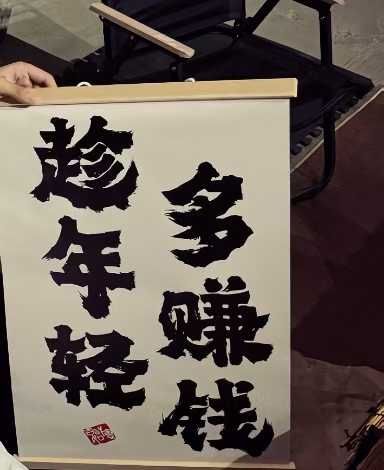 趁年轻
多赚钱